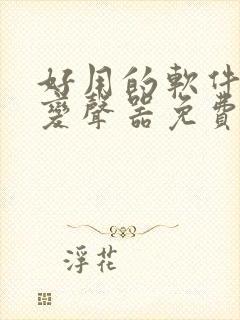 好用的軟件
變聲器免費
浮花